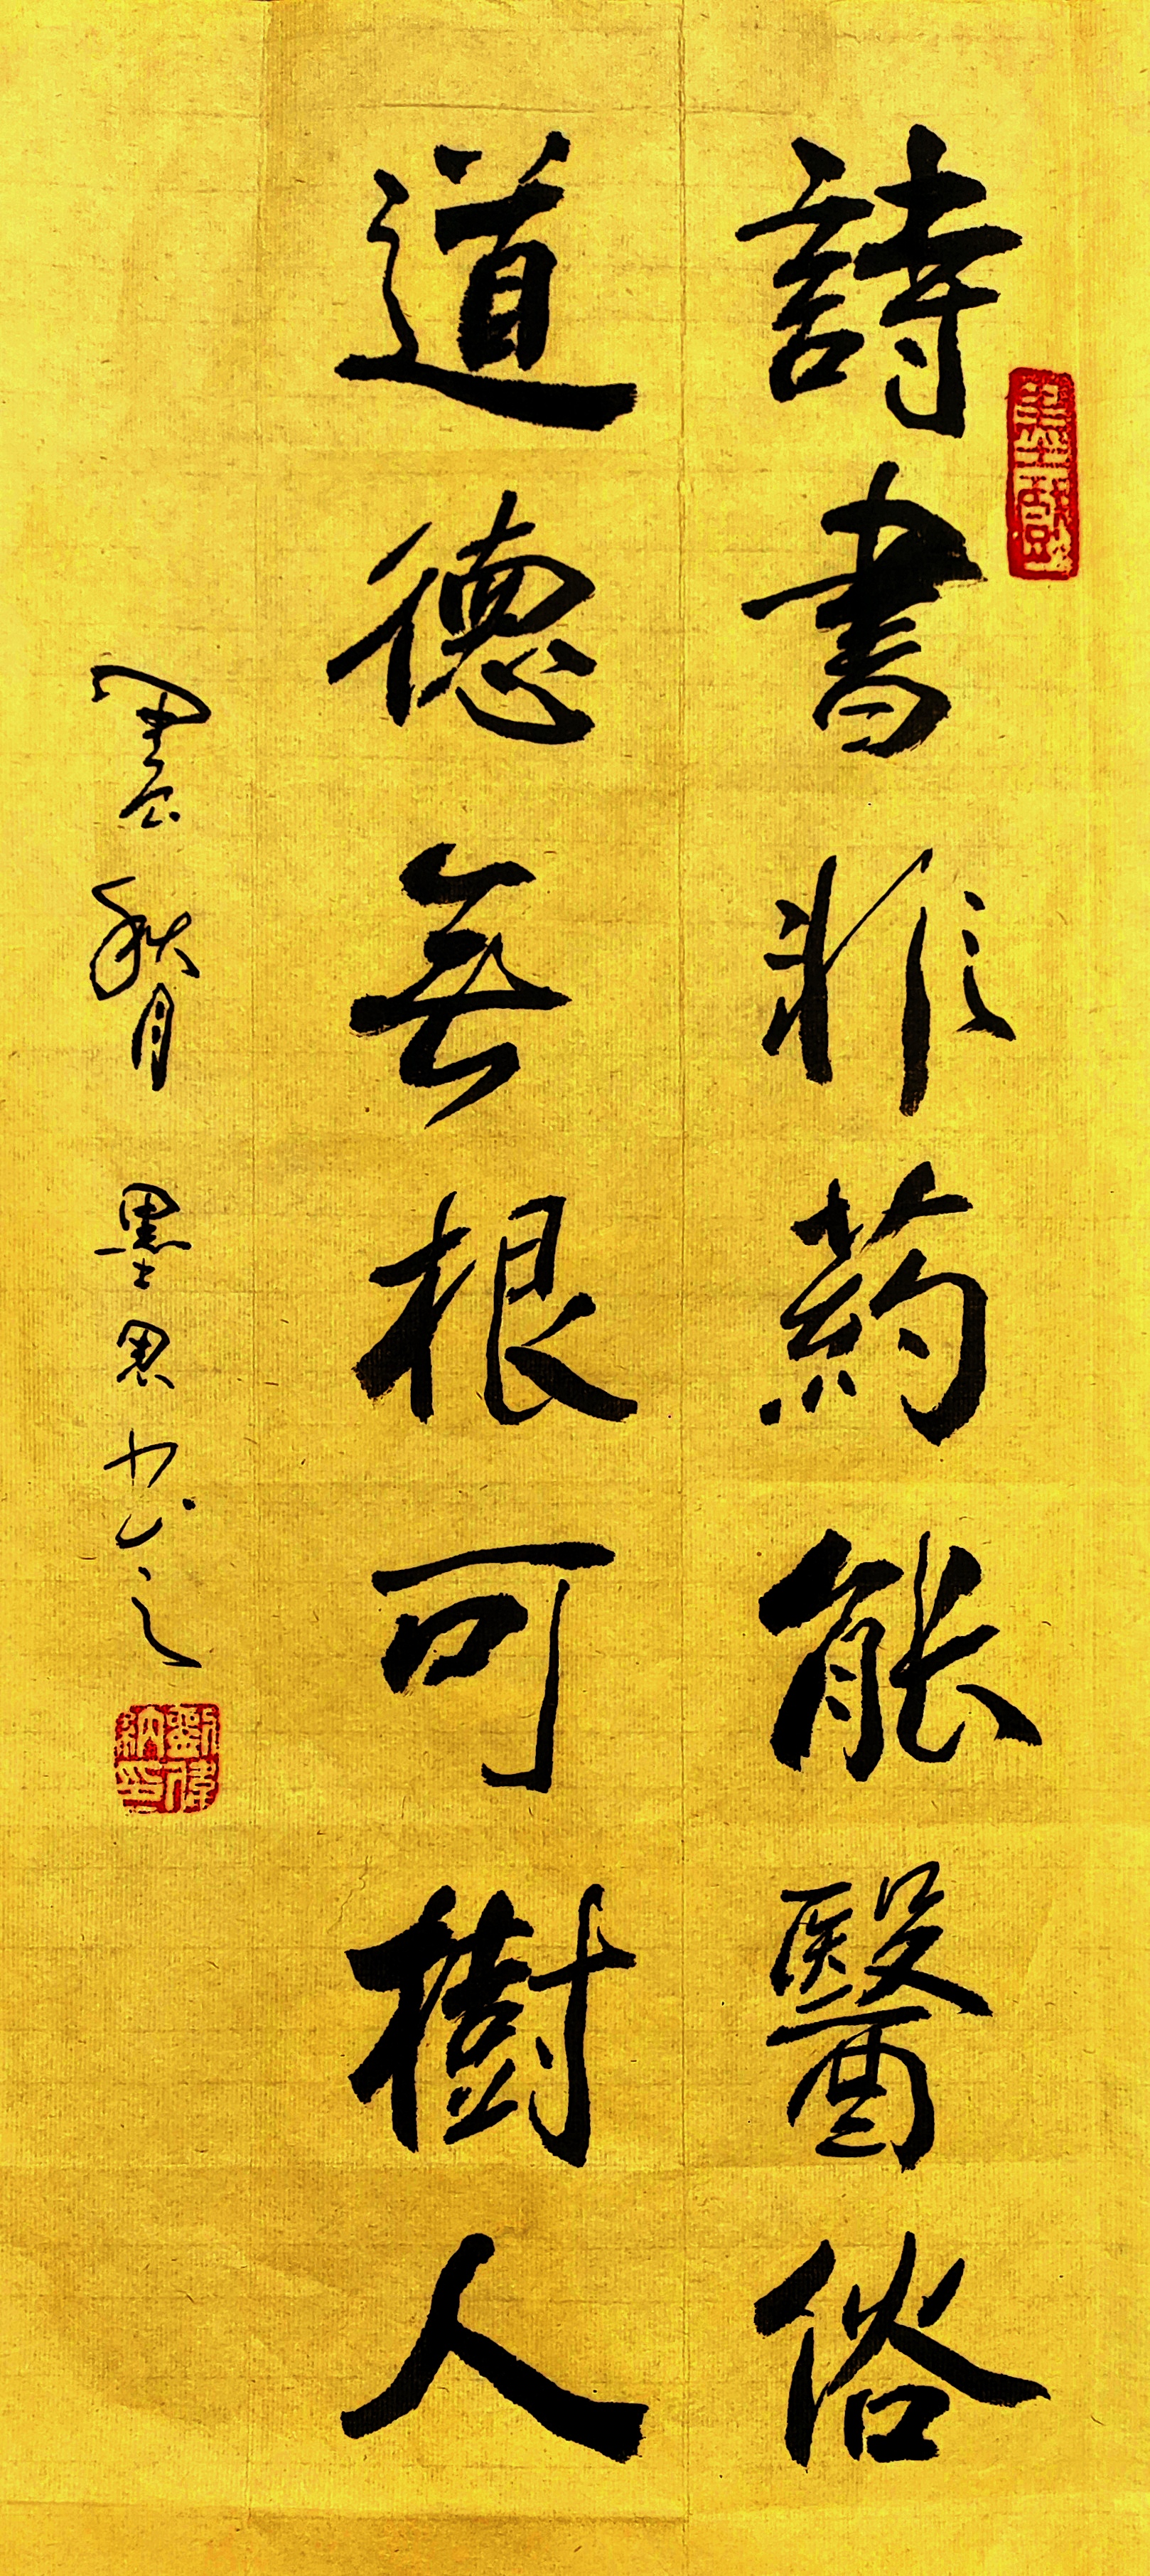 詩書非葯能醫俗
道德無根可樹人
秋月 墨思书之